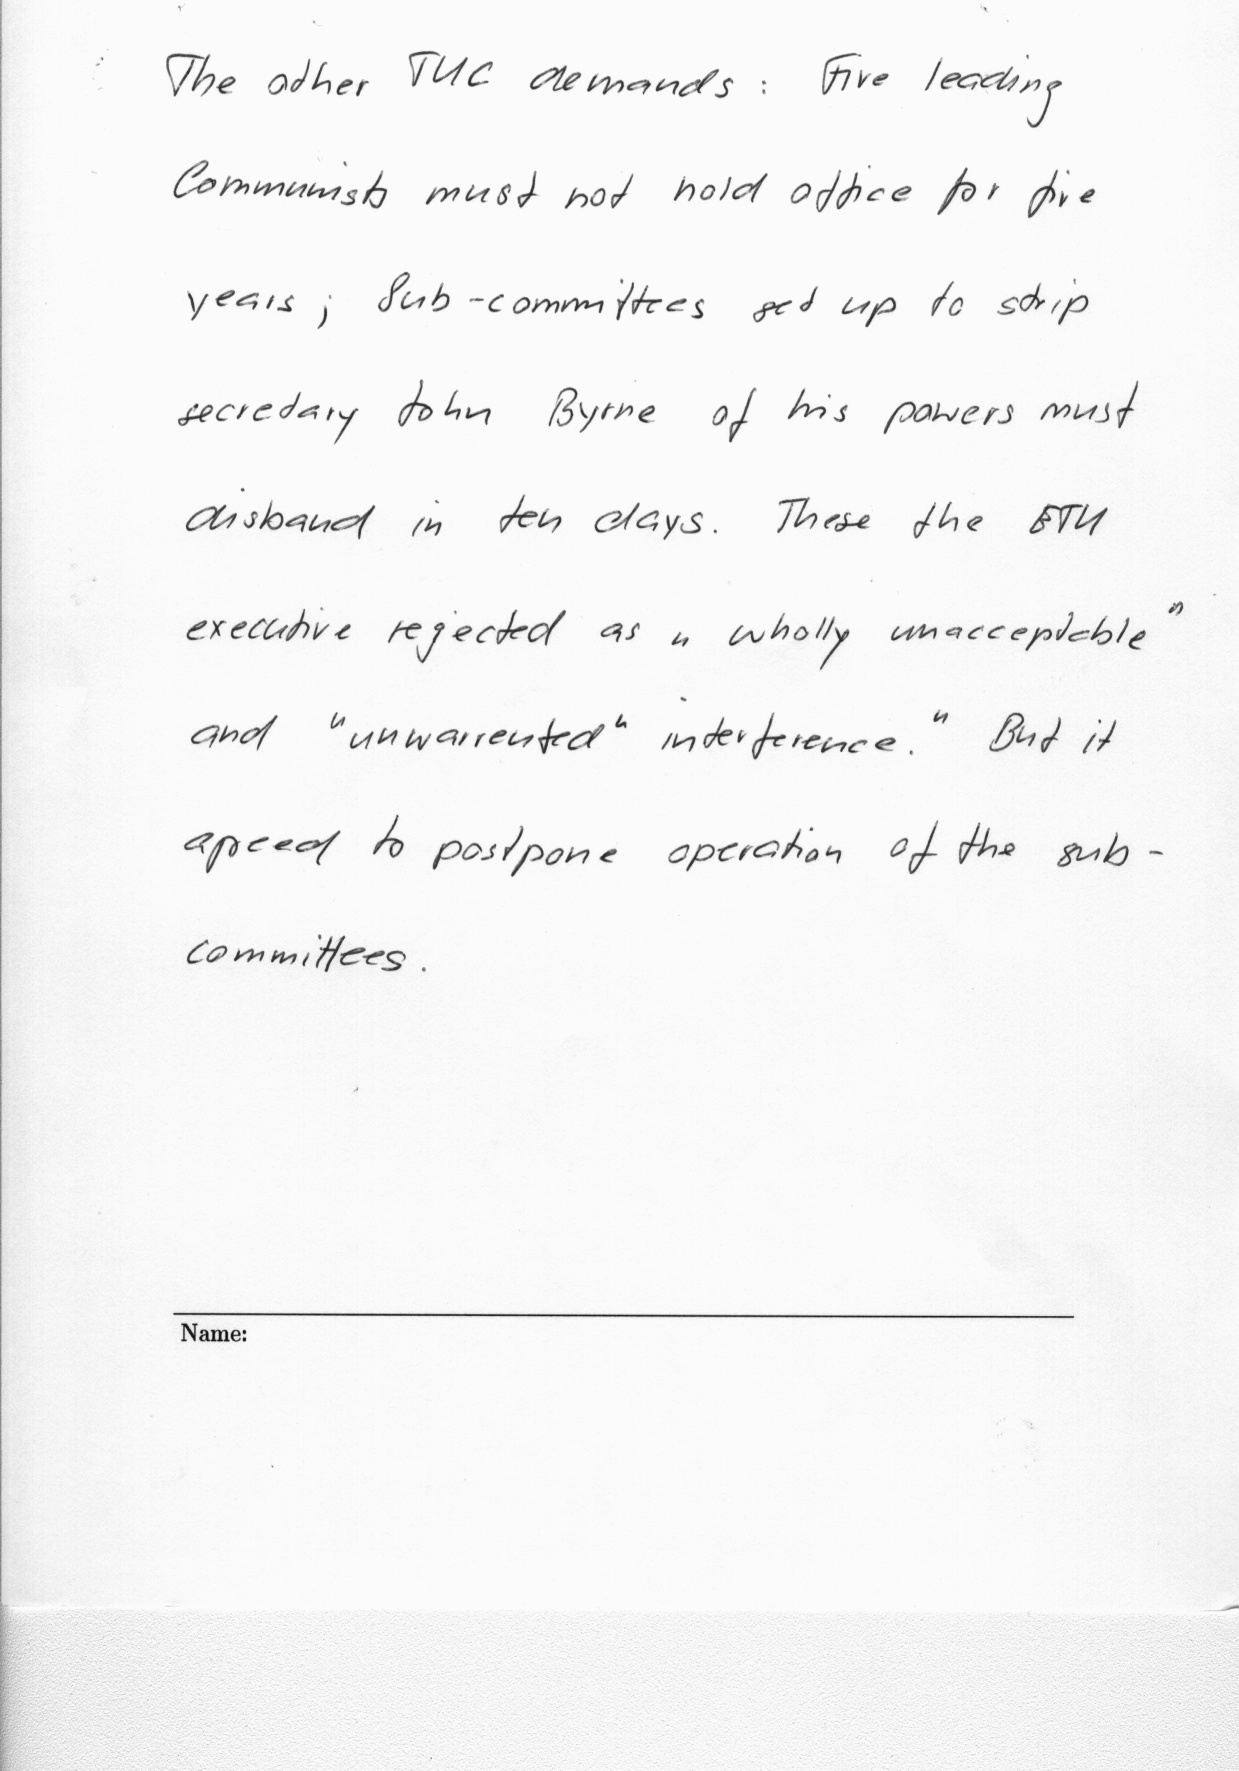 The other TUC demands: Five leading
Communists must not hold office for five
years; Sub-committees set up to strip
secretary John Byrne of his powers must
disband in ten days. These the ETU
executive rejected as "wholly unacceptable"
and "unwarrented" interference." But it
agreed to postpone operation of the sub-
committees.
Name: